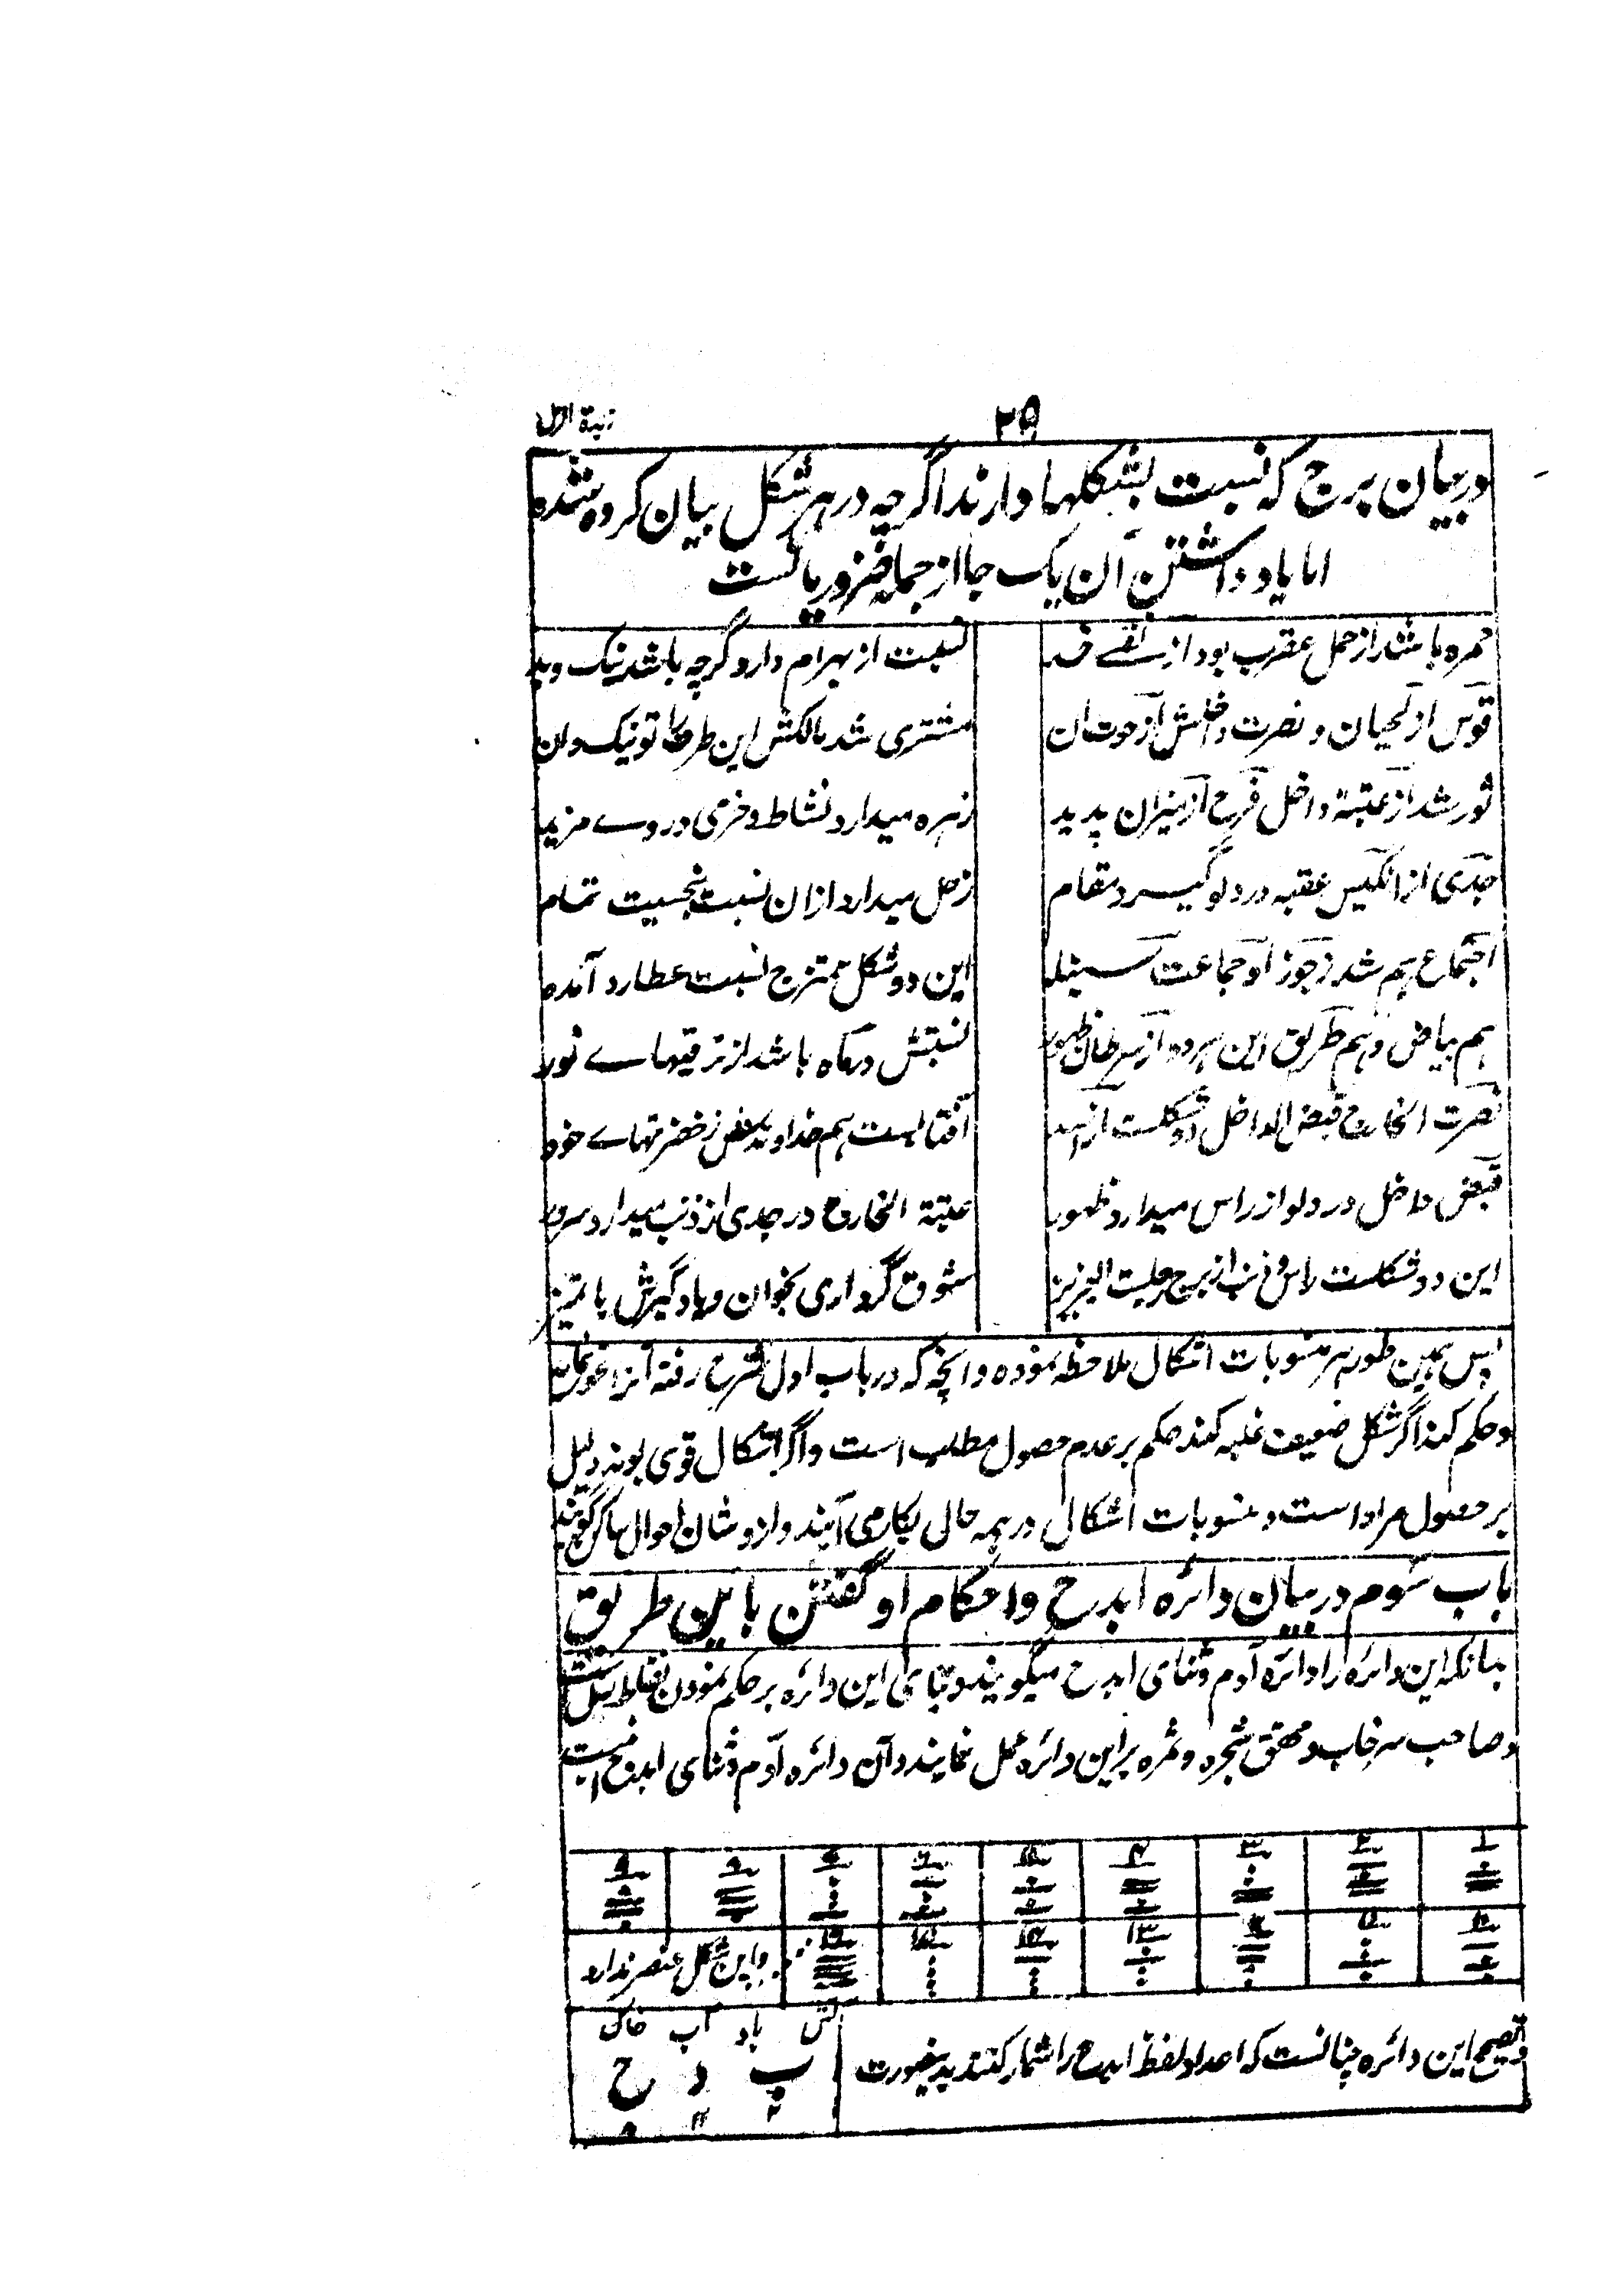 زبدة الرمل
۲۵
در بیان برج که نسبت بشکلها دارند اگرچه در هر شکل بیان کرده شده
اما یاد داشتن آن یک جا از جمله ضروریاتست
حمره باشد از حمل عقرب بود از نقی خد
نسبت از بهرام دارد گرچه باشد نیک و بد
قوس از لحیان و نصرت داخلش از حوت دان
مشتری شد مالکش این طرفه تو نیک دان
ثور شد از عتبة داخل فرح از میزان پدید
زهره میدارد نشاط و خرمی در وے مزید
جدی از انکیس عقبه در دلو گیرد مقام
زحل میدارد ازان نسبت نحسیت تمام
اجتماع هم شد ز جوزا و جماعت سنبله
این دو شکل ممتزج نسبت عطارد آمده
هم بیاض و هم طریق این هر دو از سرطان ظهور
نسبتش در ماه باشد از ترقیهاے نور
نصرت الخارج قبض الداخل دو شکلست از اسد
آفتابست هم خداوند
قبض داخل در دلو از راس میدارد ظهور
عتبة الخارج در جدی از ذنب میدارد سرور
این دو شکلست راس و ذنب از برج
شوق گر داری بخوان و یاد گیرش با تمیز
پس بهمین طور هر منسوبات اشکال ملاحظه نموده و انچه که در باب اول شرح رفته آنرا
و حکم کند اگر شکل ضعیف غلبه کند حکم بر عدم حصول مطلب است و اگر اشکال قوی بوند دلیل
بر حصول مراد است و منسوبات اشکال در همه حال بکار می آیند و ازوشان احوال
باب سوم در بیان دائره ابدح و احکام او گفتن باین طریق
بدانکه این دائره را دائره آدم و ثنای ابدح میگویند و بنای این دائره بر حکم نمودن نقاط
و صاحب سرخاب و محقق شجره و ثمره بر این دائره عمل نمایند و آن دائره آدم و ثنای ابدح است
۱ ۲ ۳ ۴ ۵ ۶ ۷ ۸ ۹
۱۰ ۱۱ ۱۲ ۱۳ ۱۴ ۱۵ ۱۶ و این شکل عنصر ندارد
و تصحیح این دائره چنانست که اعداد لفظ ابدح را شمار کنند بدینصورت
آتش باد آب خاک
ب د ح
۲ ۴ ۸